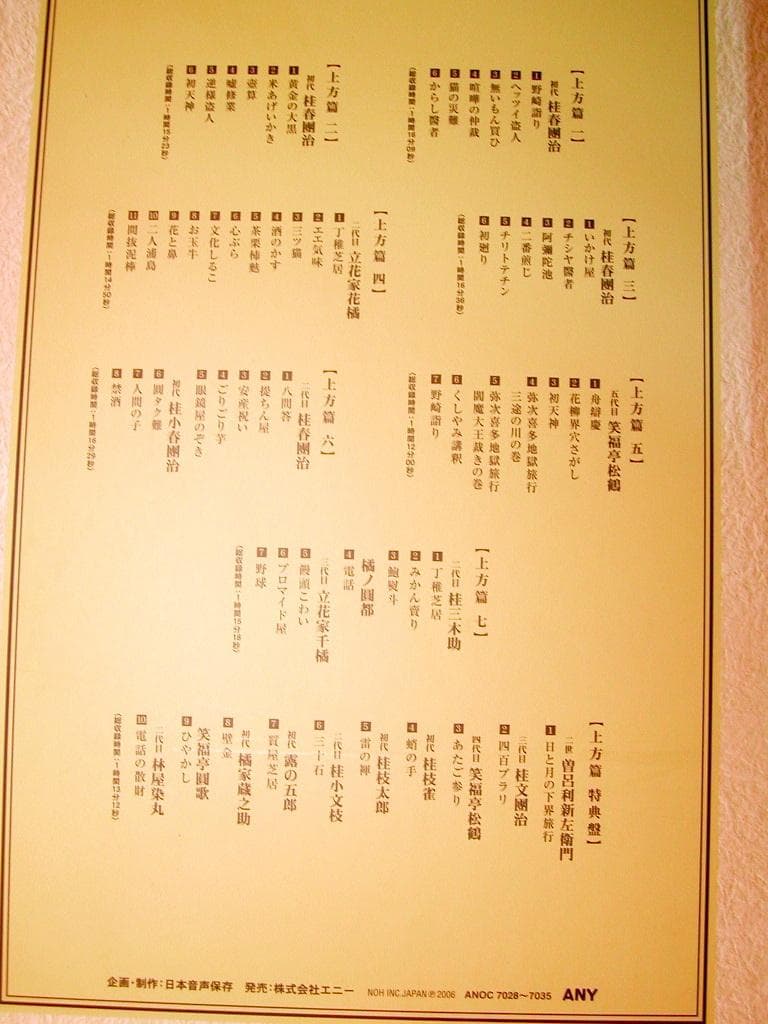 【上方篇 一】
初代 桂春團治
1 野崎詣り
2 ヘッツイ盗人
3 無いもん買ひ
4 喧嘩の仲裁
5 猫の災難
6 からし醫者
【上方篇 二】
初代 桂春團治
1 黄金の大黒
2 米あげいかき
3 壺算
4 嘘修業
5 逆様盗人
6 初天神
(総収録時間:1時間15分23秒)
【上方篇 三】
初代 桂春團治
1 いかけ屋
2 チシヤ醫者
3 阿彌陀池
4 二番煎じ
5 チリトテチン
6 初廻り
(総収録時間:1時間16分36秒)
【上方篇 四】
二代目 立花家花橘
1 丁稚芝居
2 エエ気味
3 三ツ猫
4 酒のかす
5 茶栗柿麩
6 心ぶら
7 文化しるこ
8 お玉牛
9 花と鼻
10 二人浦島
11 間抜泥棒
(総収録時間:1時間14分50秒)
【上方篇 五】
五代目 笑福亭松鶴
1 舟辯慶
2 花柳界穴さがし
3 初天神
4 弥次喜多地獄旅行
三途の川の巻
5 弥次喜多地獄旅行
閻魔大王裁きの巻
6 くしやみ講釈
7 野崎詣り
(総収録時間:1時間12分00秒)
【上方篇 六】
二代目 桂春團治
1 八問答
2 提ちん屋
3 安産祝い
4 ごりごり芋
5 眼鏡屋のぞき
初代 桂小春團治
6 圓タク難
7 人間の子
8 禁酒
(総収録時間:1時間16分29秒)
【上方篇 七】
二代目 桂三木助
1 丁稚芝居
2 みかん賣り
3 鮑熨斗
橘ノ圓都
4 電話
三代目 立花家千橘
5 饅頭こわい
6 ブロマイド屋
7 野球
(総収録時間:1時間15分18秒)
【上方篇 特典盤】
二世 曽呂利新左衛門
1 日と月の下界旅行
三代目 桂文團治
2 四百ブラリ
四代目 笑福亭松鶴
3 あたご参り
初代 桂枝雀
4 蛸の手
初代 桂枝太郎
5 雷の褌
二代目 桂小文枝
6 三十石
初代 露の五郎
7 質屋芝居
初代 橘家蔵之助
8 壁金
笑福亭圓歌
9 ひやかし
二代目 林屋染丸
10 電話の散財
(総収録時間:1時間13分12秒)
企画・制作:日本音声保存 発売:株式会社エニー NOH INC.JAPAN℗2006 ANOC 7028〜7035 ANY